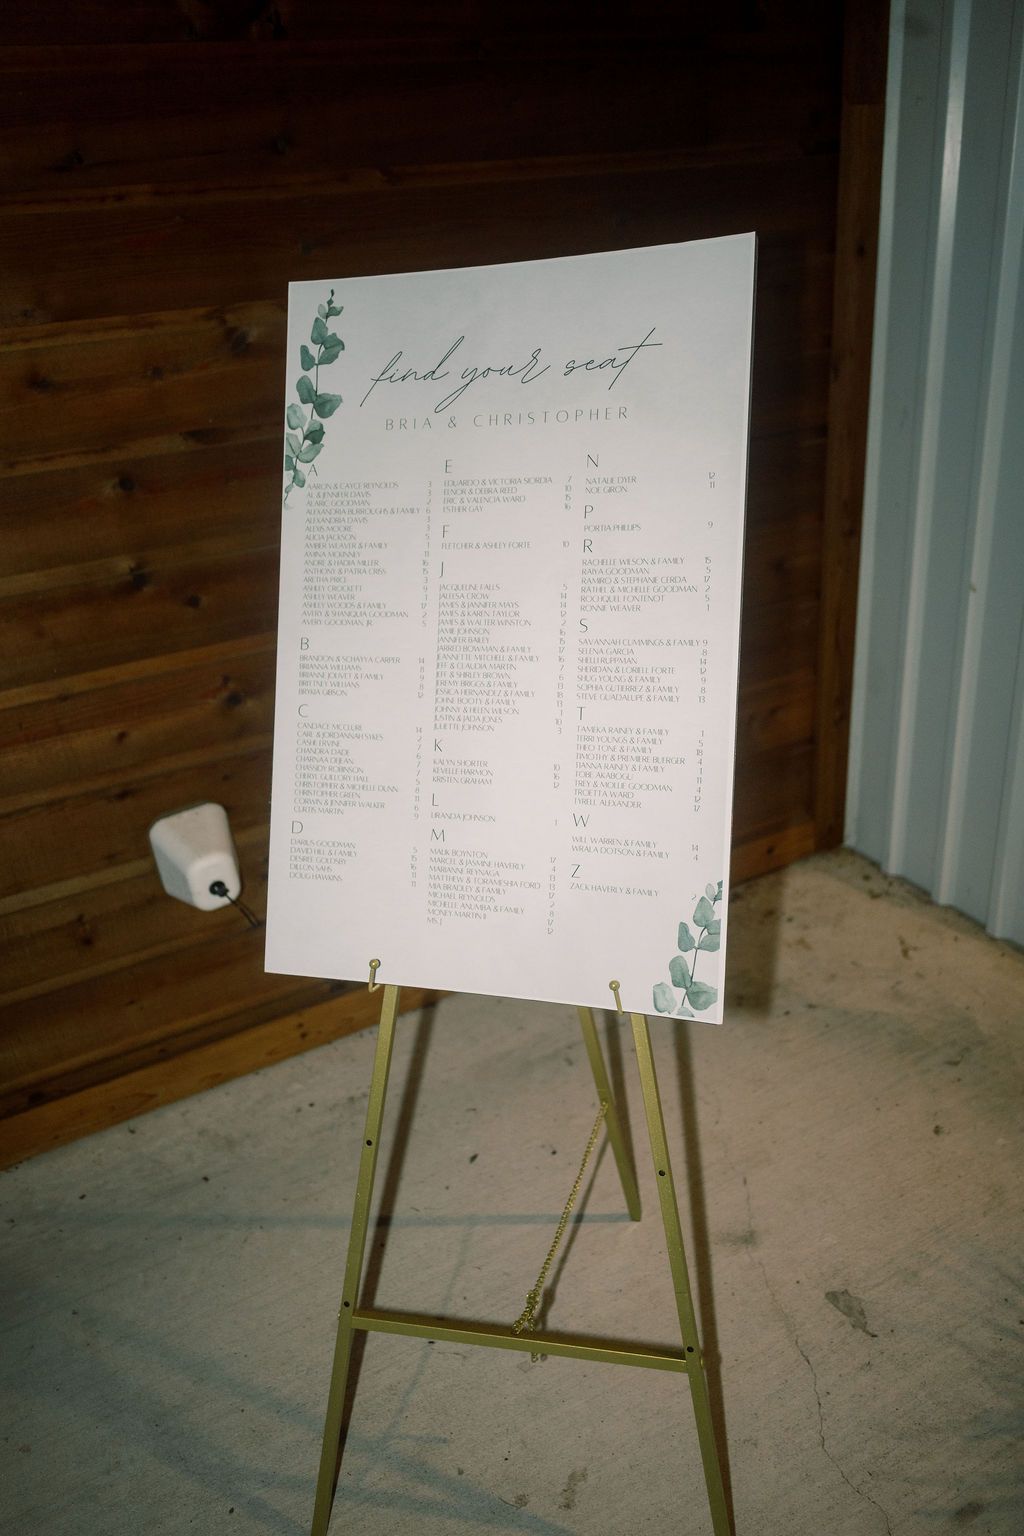 find your seat
BRIA & CHRISTOPHER
A
AARON & CAYCE REYNOLDS 3
AL & JENNIFER DAVIS 3
ALARIC GOODMAN 2
ALEXANDRIA BURROUGHS & FAMILY 6
ALEXANDRIA DAVIS 3
ALEXIS MOORE 3
ALICIA JACKSON 5
AMBER WEAVER & FAMILY 1
AMINA MCKINNEY 11
ANDRE & HADIA MILLER 16
ANTHONY & PATRA CRISS 15
ARETHA PRICE 3
ASHLEY CROCKETT 9
ASHLEY WEAVER 1
ASHLEY WOODS & FAMILY 17
AVERY & SHANIQUIA GOODMAN 2
AVERY GOODMAN, JR 5
B
BRANDON & SCHAYYA CARPER 14
BRIANNA WILLIAMS 8
BRIANNE JOLIVET & FAMILY 9
BRITTNEY WILLIAMS 8
BRYKIA GIBSON 12
C
CANDACE MCCLURE 14
CARL & JORDANNAH SYKES 2
CASHE ERVINE 7
CHANDRA DADE 6
CHARNAA DEJEAN 7
CHASSIDY ROBINSON 7
CHERYL GUILLORY HALL 5
CHRISTOPHER & MICHELLE DUNN 8
CHRISTOPHER GREEN 11
CORWIN & JENNIFER WALKER 6
CURTIS MARTIN 9
D
DARIUS GOODMAN 5
DAVID HILL & FAMILY 15
DESIREE GOLDSBY 16
DILLON SAHS 11
DOUG HAWKINS 11
E
EDUARDO & VICTORIA SIORDIA 7
ELNOR & DEBRA REED 10
ERIC & VALENCIA WARD 15
ESTHER GAY 16
F
FLETCHER & ASHLEY FORTE 10
J
JACQUELINE FALLS 5
JALEESA CROW 14
JAMES & JANNIFER MAYS 14
JAMES & KAREN TAYLOR 12
JAMES & WALTER WINSTON 2
JAMIE JOHNSON 16
JANNIFER BAILEY 15
JARRED BOWMAN & FAMILY 17
JEANNETTE MITCHELL & FAMILY 16
JEFF & CLAUDIA MARTIN 7
JEFF & SHIRLEY BROWN 6
JEREMY BRIGGS & FAMILY 13
JESSICA HERNANDEZ & FAMILY 18
JOHNE BOOTY & FAMILY 13
JOHNNY & HELEN WILSON 1
JUSTIN & JADA JONES 10
JULIETTE JOHNSON 3
K
KALYN SHORTER 10
KEVELLE HARMON 16
KRISTEN GRAHAM 12
L
LIRANDA JOHNSON 1
M
MALIK BOYNTON 17
MARCEL & JASMINE HAVERLY 4
MARIANNE REYNAGA 13
MATTHEW & TORAMESHIA FORD 13
MIA BRADLEY & FAMILY 17
MICHAEL REYNOLDS 2
MICHELLE ANUMBA & FAMILY 8
MONEY MARTIN II 17
MS. J 12
N
NATALIE DYER 12
NOE GIRON 11
P
PORTIA PHILLIPS 9
R
RACHELLE WILSON & FAMILY 15
RAIYA GOODMAN 5
RAMIRO & STEPHANIE CERDA 17
RATHEL & MICHELLE GOODMAN 2
ROCHQUEL FONTENOT 5
RONNIE WEAVER 1
S
SAVANNAH CUMMINGS & FAMILY 9
SELENA GARCIA 8
SHELLI RUPPMAN 14
SHERIDAN & LORIELL FORTE 12
SHUG YOUNG & FAMILY 9
SOPHIA GUTIERREZ & FAMILY 8
STEVE GUADALUPE & FAMILY 13
T
TAMEKA RAINEY & FAMILY 1
TERRI YOUNGS & FAMILY 5
THEO TONE & FAMILY 18
TIMOTHY & PREMIERE BUERGER 4
TIANNA RAINEY & FAMILY 1
TOBE AKABOGU 11
TREY & MOLLIE GOODMAN 4
TROETTA WARD 12
TYRELL ALEXANDER 17
W
WILL WARREN & FAMILY 14
WRALA DOTSON & FAMILY 4
Z
ZACK HAVERLY & FAMILY 2